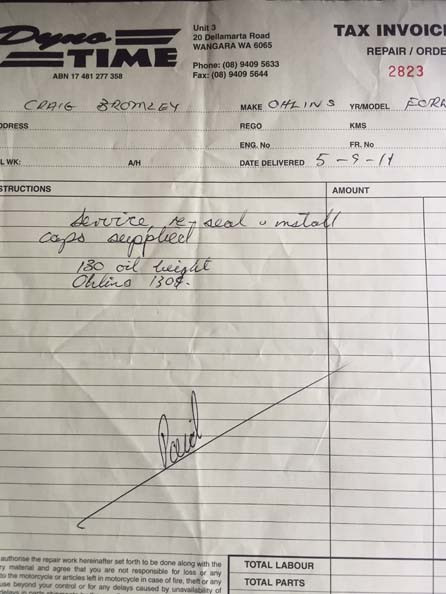 Dyno
TIME
ABN 17 481 277 358
Unit 3
20 Dellamarta Road
WANGARA WA 6065
Phone: (08) 9409 5633
Fax: (08) 9409 5644
TAX INVOIC
REPAIR / ORDE
2823
CRAIG BROMLEY
MAKE OHLINS YR/MODEL FORK
DDRESS REGO KMS
ENG. No FR. No
L WK: A/H DATE DELIVERED 5-9-11
STRUCTIONS AMOUNT
Service, re-seal & install
caps supplied
130 oil height
Ohlins
Paid
authorise the repair work hereinafter set forth to be done along with the
ry material and agree that you are not responsible for loss or any
to the motorcycle or articles left in motorcycle in case of fire, theft or any
use beyond your control or for any delays caused by unavailability of
TOTAL LABOUR
TOTAL PARTS